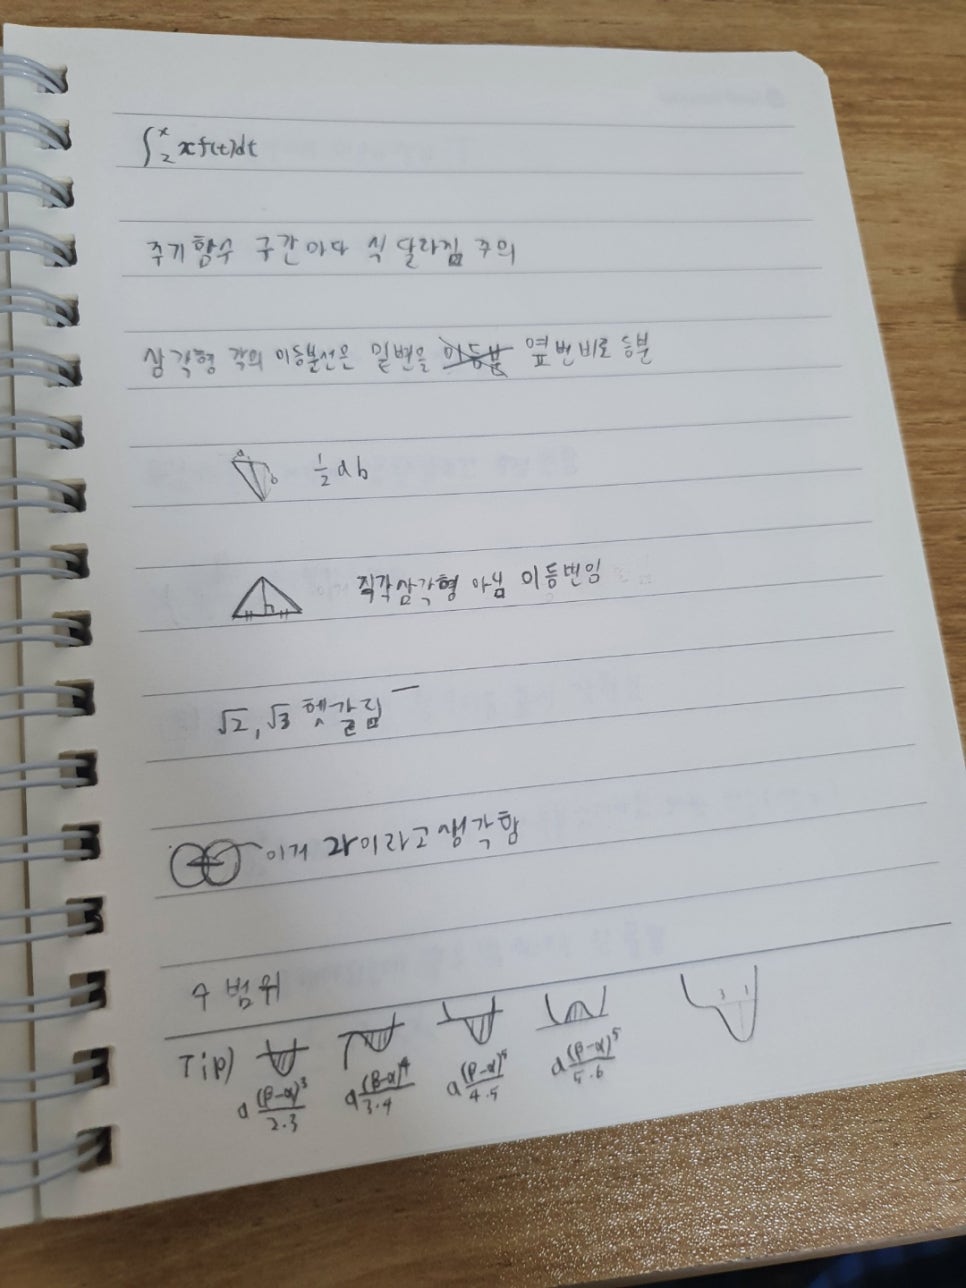 ∫₂ˣ xf(t)dt
주기함수 구간마다 식 달라짐 주의
삼각형 각의 이등분선은 밑변을 이등분 옆변비로 등분
a b 1/2 ab
직각삼각형 아님 이등변임
√2, √3 헷갈림
이거 2라이라고 생각함
수 범위
Tip)
a (β-α)³/2·3 a (β-α)⁴/3·4 a (β-α)⁵/4·5 a (β-α)⁵/5·6 3 1